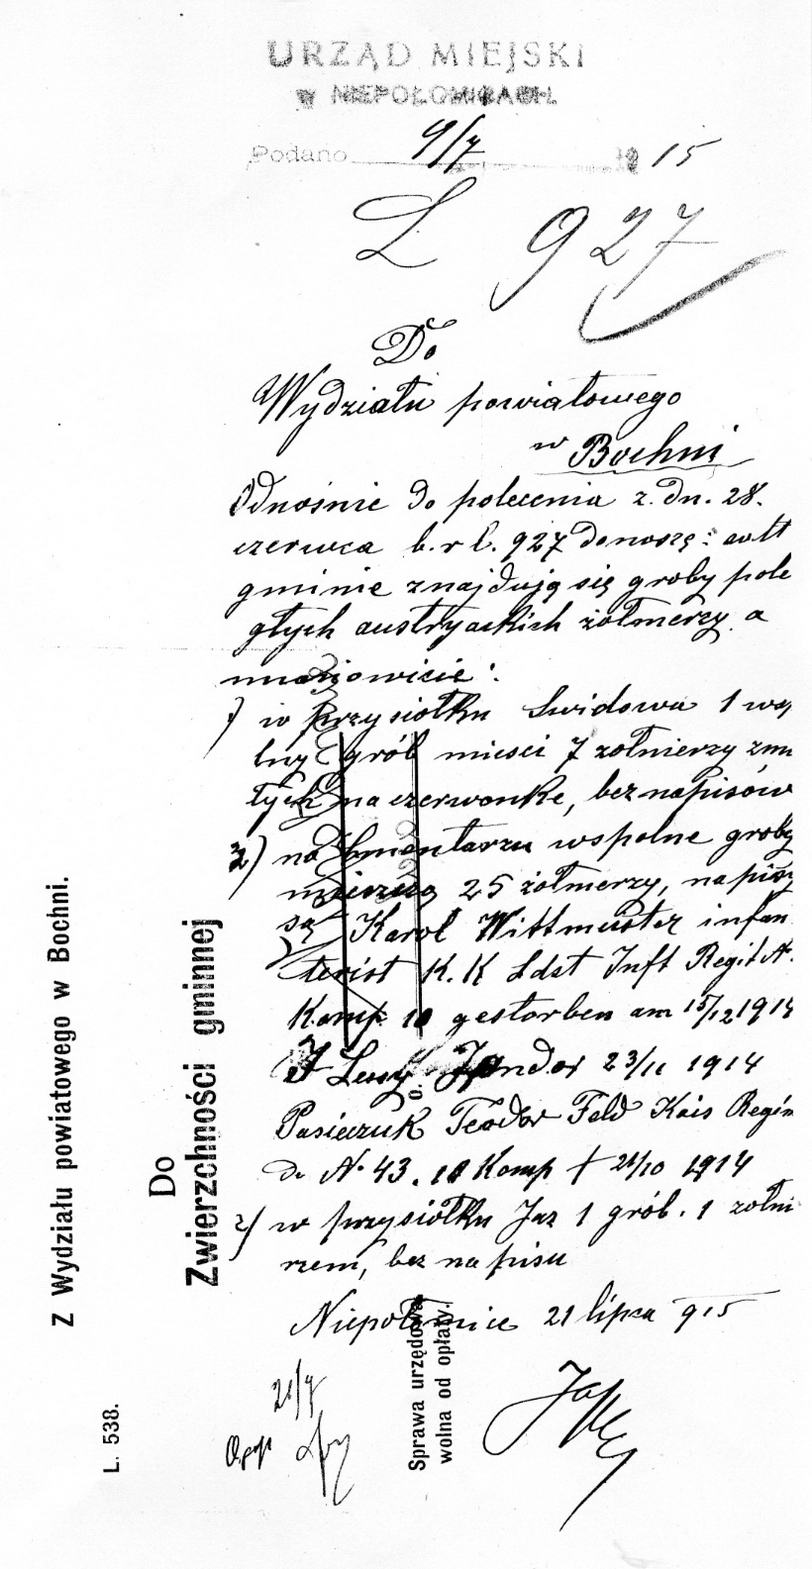 URZĄD MIEJSKI
w NIEPOŁOMICACH
Podano 9/7 1915
L 927
Do
Wydziału powiatowego
w Bochni
Odnośnie do polecenia z. dn. 28.
czerwca b.r l. 927 donoszę: w tt
gminie znajdują się groby pole
głych austryackich żołnierzy a
mianowicie:
1) w przysiółku Swidowa 1 wspó
lny grób miesci 7 żołnierzy zma
łych na czerwonke, bez napisów
2) na cmentarzu wspolne groby
25 żołnierzy, napisy
są Karol Wittmeister infan
terist K. K Ldst Inft Regit N.
Komp 10 gestorben am 15/12 1914
23/11 1914
Pasieczuk Teodor Feld Kais Regim
de N. 43. 10 Komp † 21/10 1914
w przysiółku Jaz 1 grób. 1 żołni
rzem, bez napisu
Niepołomice 21 lipca 915
21/7
Z Wydziału powiatowego w Bochni.
L. 538.
Do
Zwierzchności gminnej
Sprawa urzędowa
wolna od opłaty.